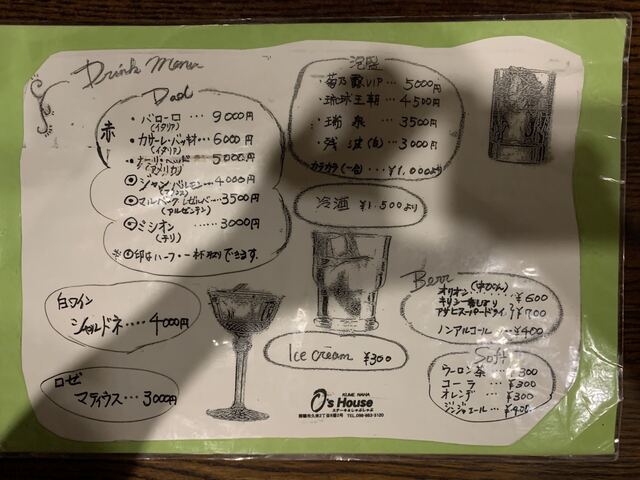 Drink Menu
赤
・バローロ … 9000円
(イタリア)
・カサーレ・バッキオ … 6000円
(イタリア)
5000円
(アメリカ)
◎ジャン バルモン … 4000円
◎マルベーク レゼルバ … 3500円
(アルゼンチン)
◎ミシオン …… 3000円
(チリ)
※◎印はハーフ・一杯売りできます。
白ワイン
シャルドネ … 4000円
ロゼ
マティウス … 3000円
泡盛
・菊乃露VIP … 5000円
・琉球王朝 … 4500円
・瑞泉 … 3500円
・残波(白) … 3000円
カラカラ(一合) … ¥1,000より
冷酒 ¥1,500より
Ice cream ¥300
Beer (中びん)
オリオン … ¥600
キリン一番しぼり
アサヒスーパードライ ¥700
ノンアルコール … ¥400
Soft
ウーロン茶 … ¥300
コーラ … ¥300
オレンヂ … ¥300
ジンジャエール … ¥400
KUME NAHA
O's House
ステーキ&しゃぶしゃぶ